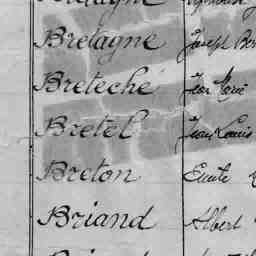 Bretagne Joseph
Breteché Jean Marie
Bretel Jean Louis
Breton Emile
Briand Albert